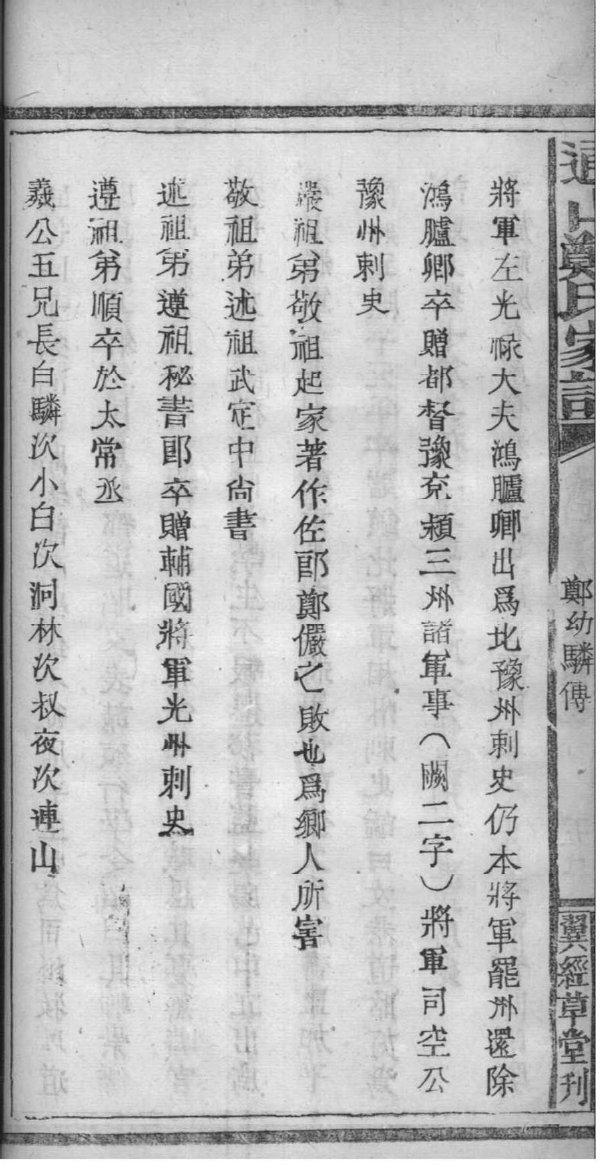 通山鄭氏家譜
鄭幼驎傳
翼經草堂刊
將軍左光祿大夫鴻臚卿出爲北豫州刺史仍本將軍罷州還除
鴻臚卿卒贈都督豫兗潁三州諸軍事(闕二字)將軍司空公
豫州刺史
嚴祖弟敬祖起家著作佐郎鄭儼之敗也爲鄉人所害
敬祖弟述祖武定中尙書
述祖弟遵祖秘書郎卒贈輔國將軍光州刺史
遵祖弟順卒於太常丞
羲公五兄長白驎次小白次洞林次叔夜次連山